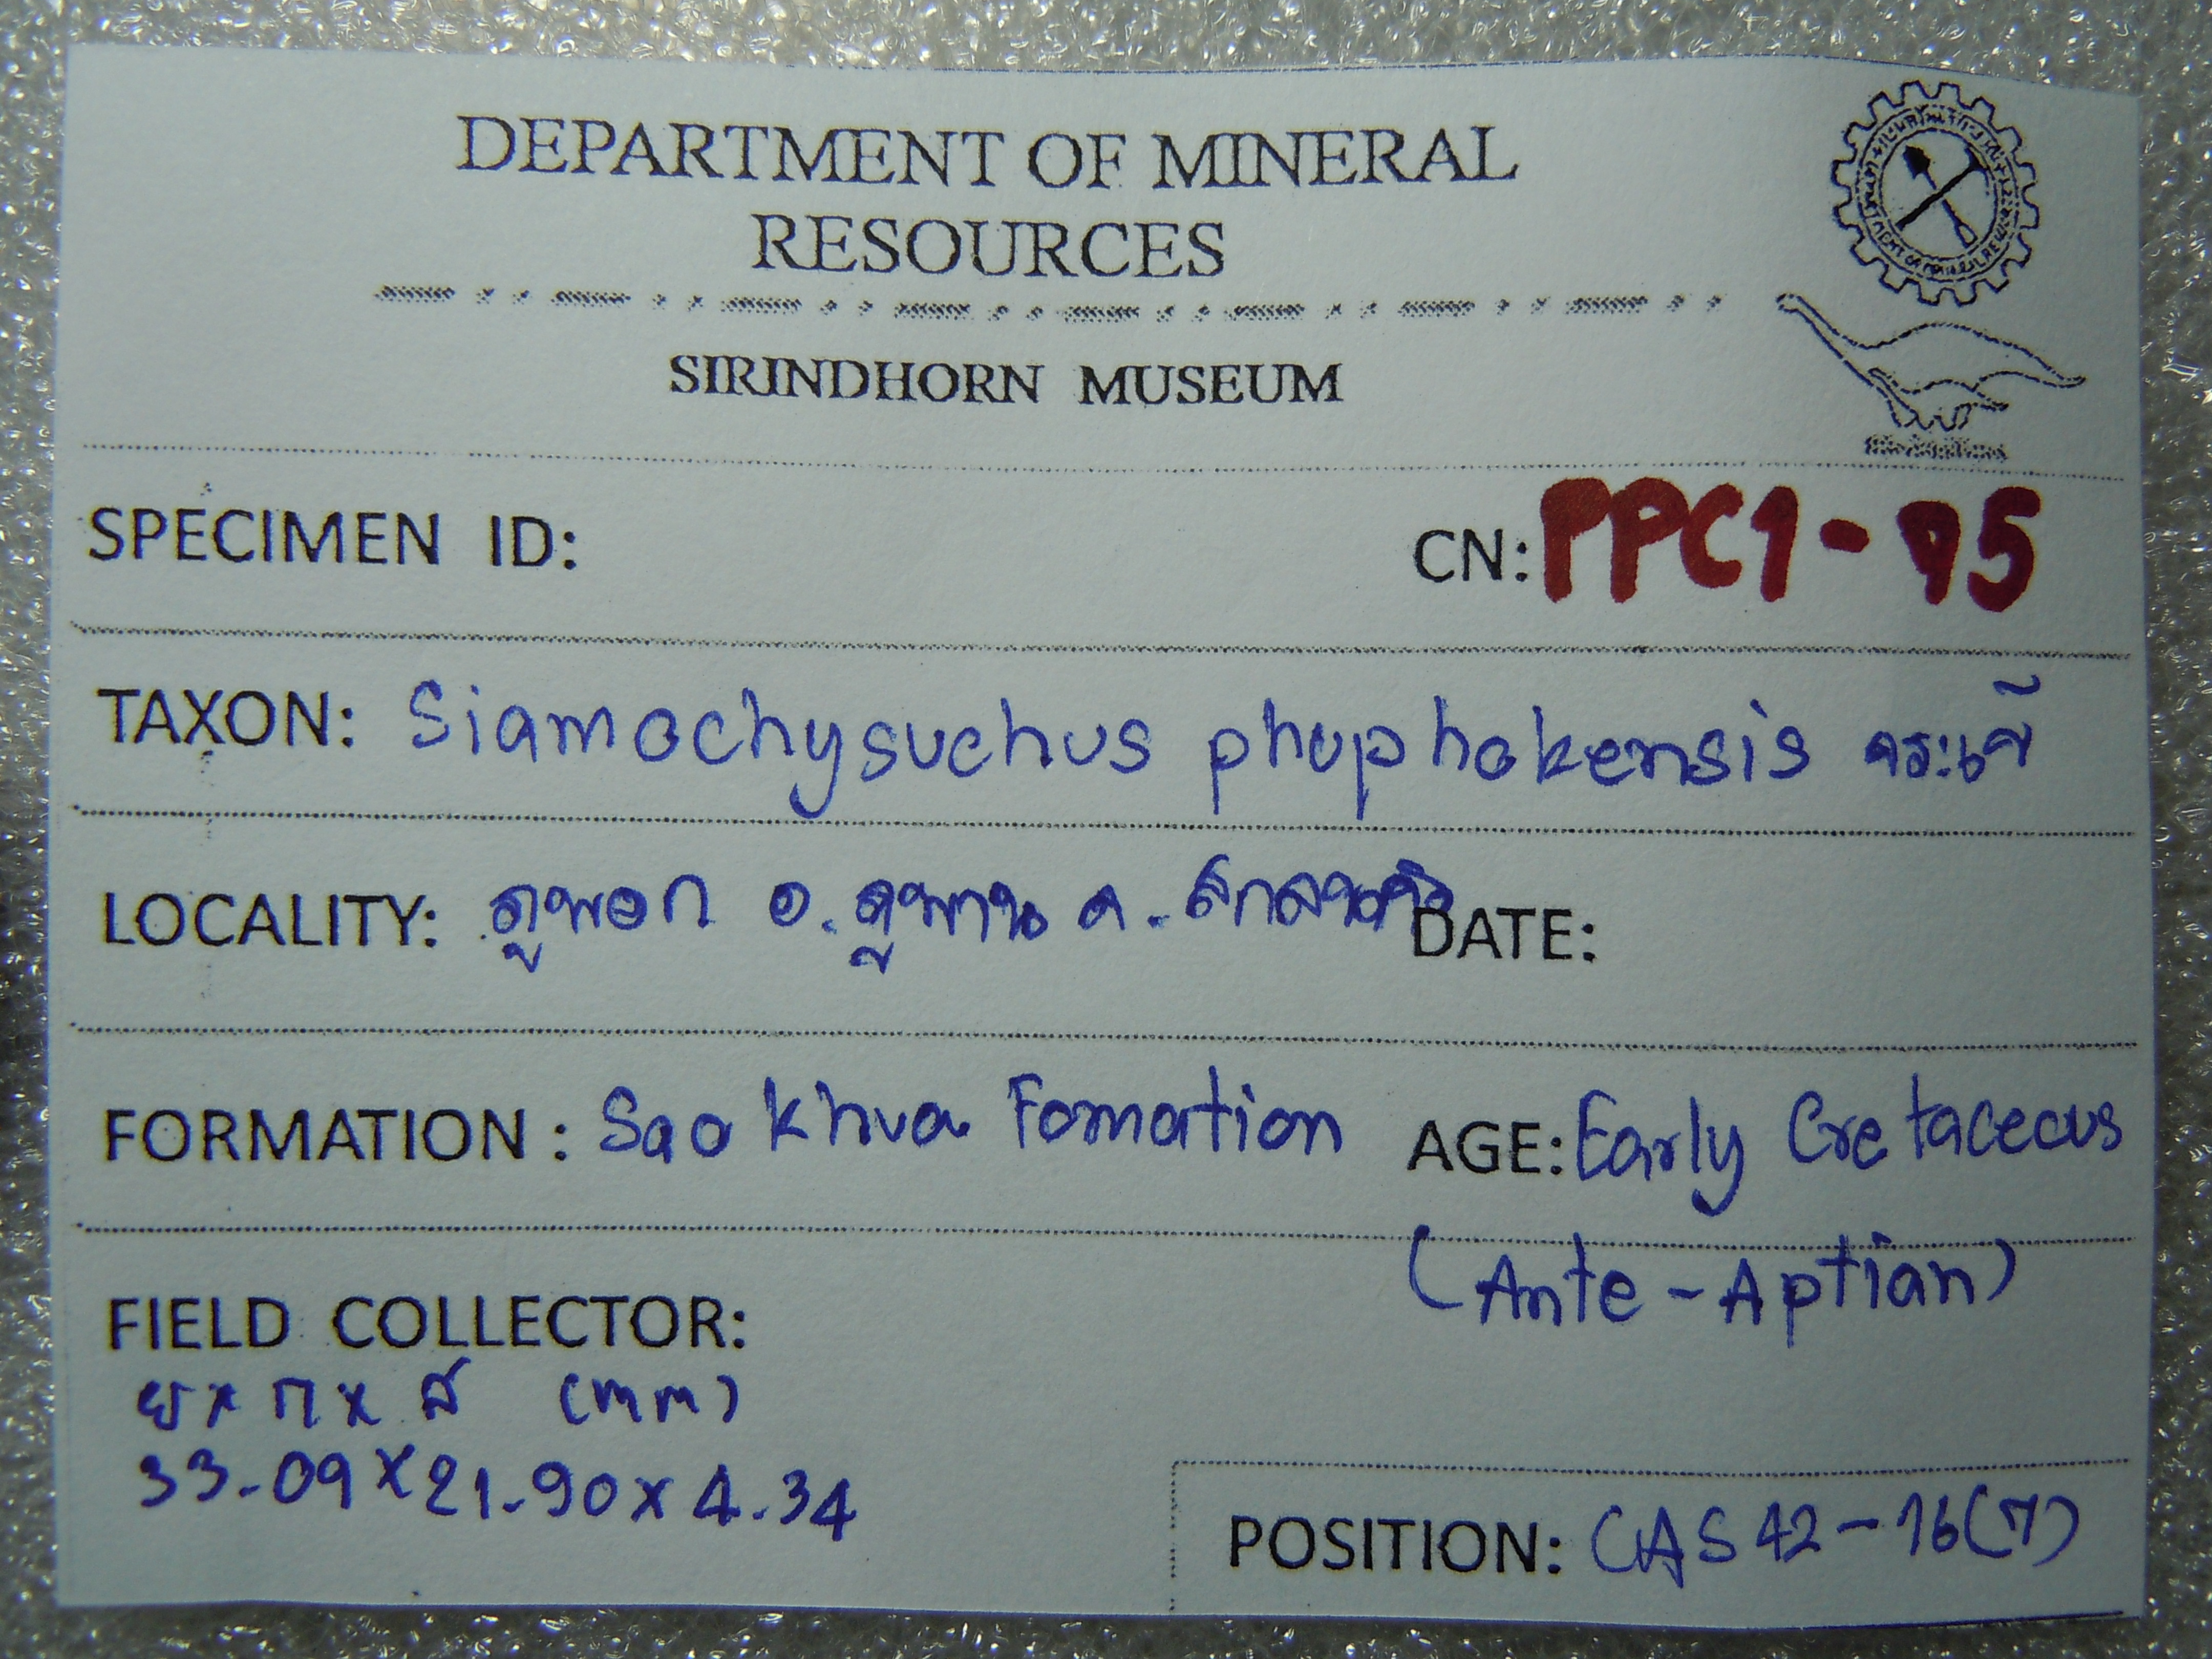 DEPARTMENT OF MINERAL
RESOURCES
SIRINDHORN MUSEUM
SPECIMEN ID: CN: PPC1-95
TAXON: Siamochysuchus phuphokensis จระเข้
LOCALITY: ภูพอก อ.ภูพาน จ.สกลนคร DATE:
FORMATION: Sao Khua Fomation AGE: Early Cretaceous
(Ante-Aptian)
FIELD COLLECTOR:
ย x ก x ส (mm)
33.09 x 21.90 x 4.34
POSITION: CAS42-16(7)